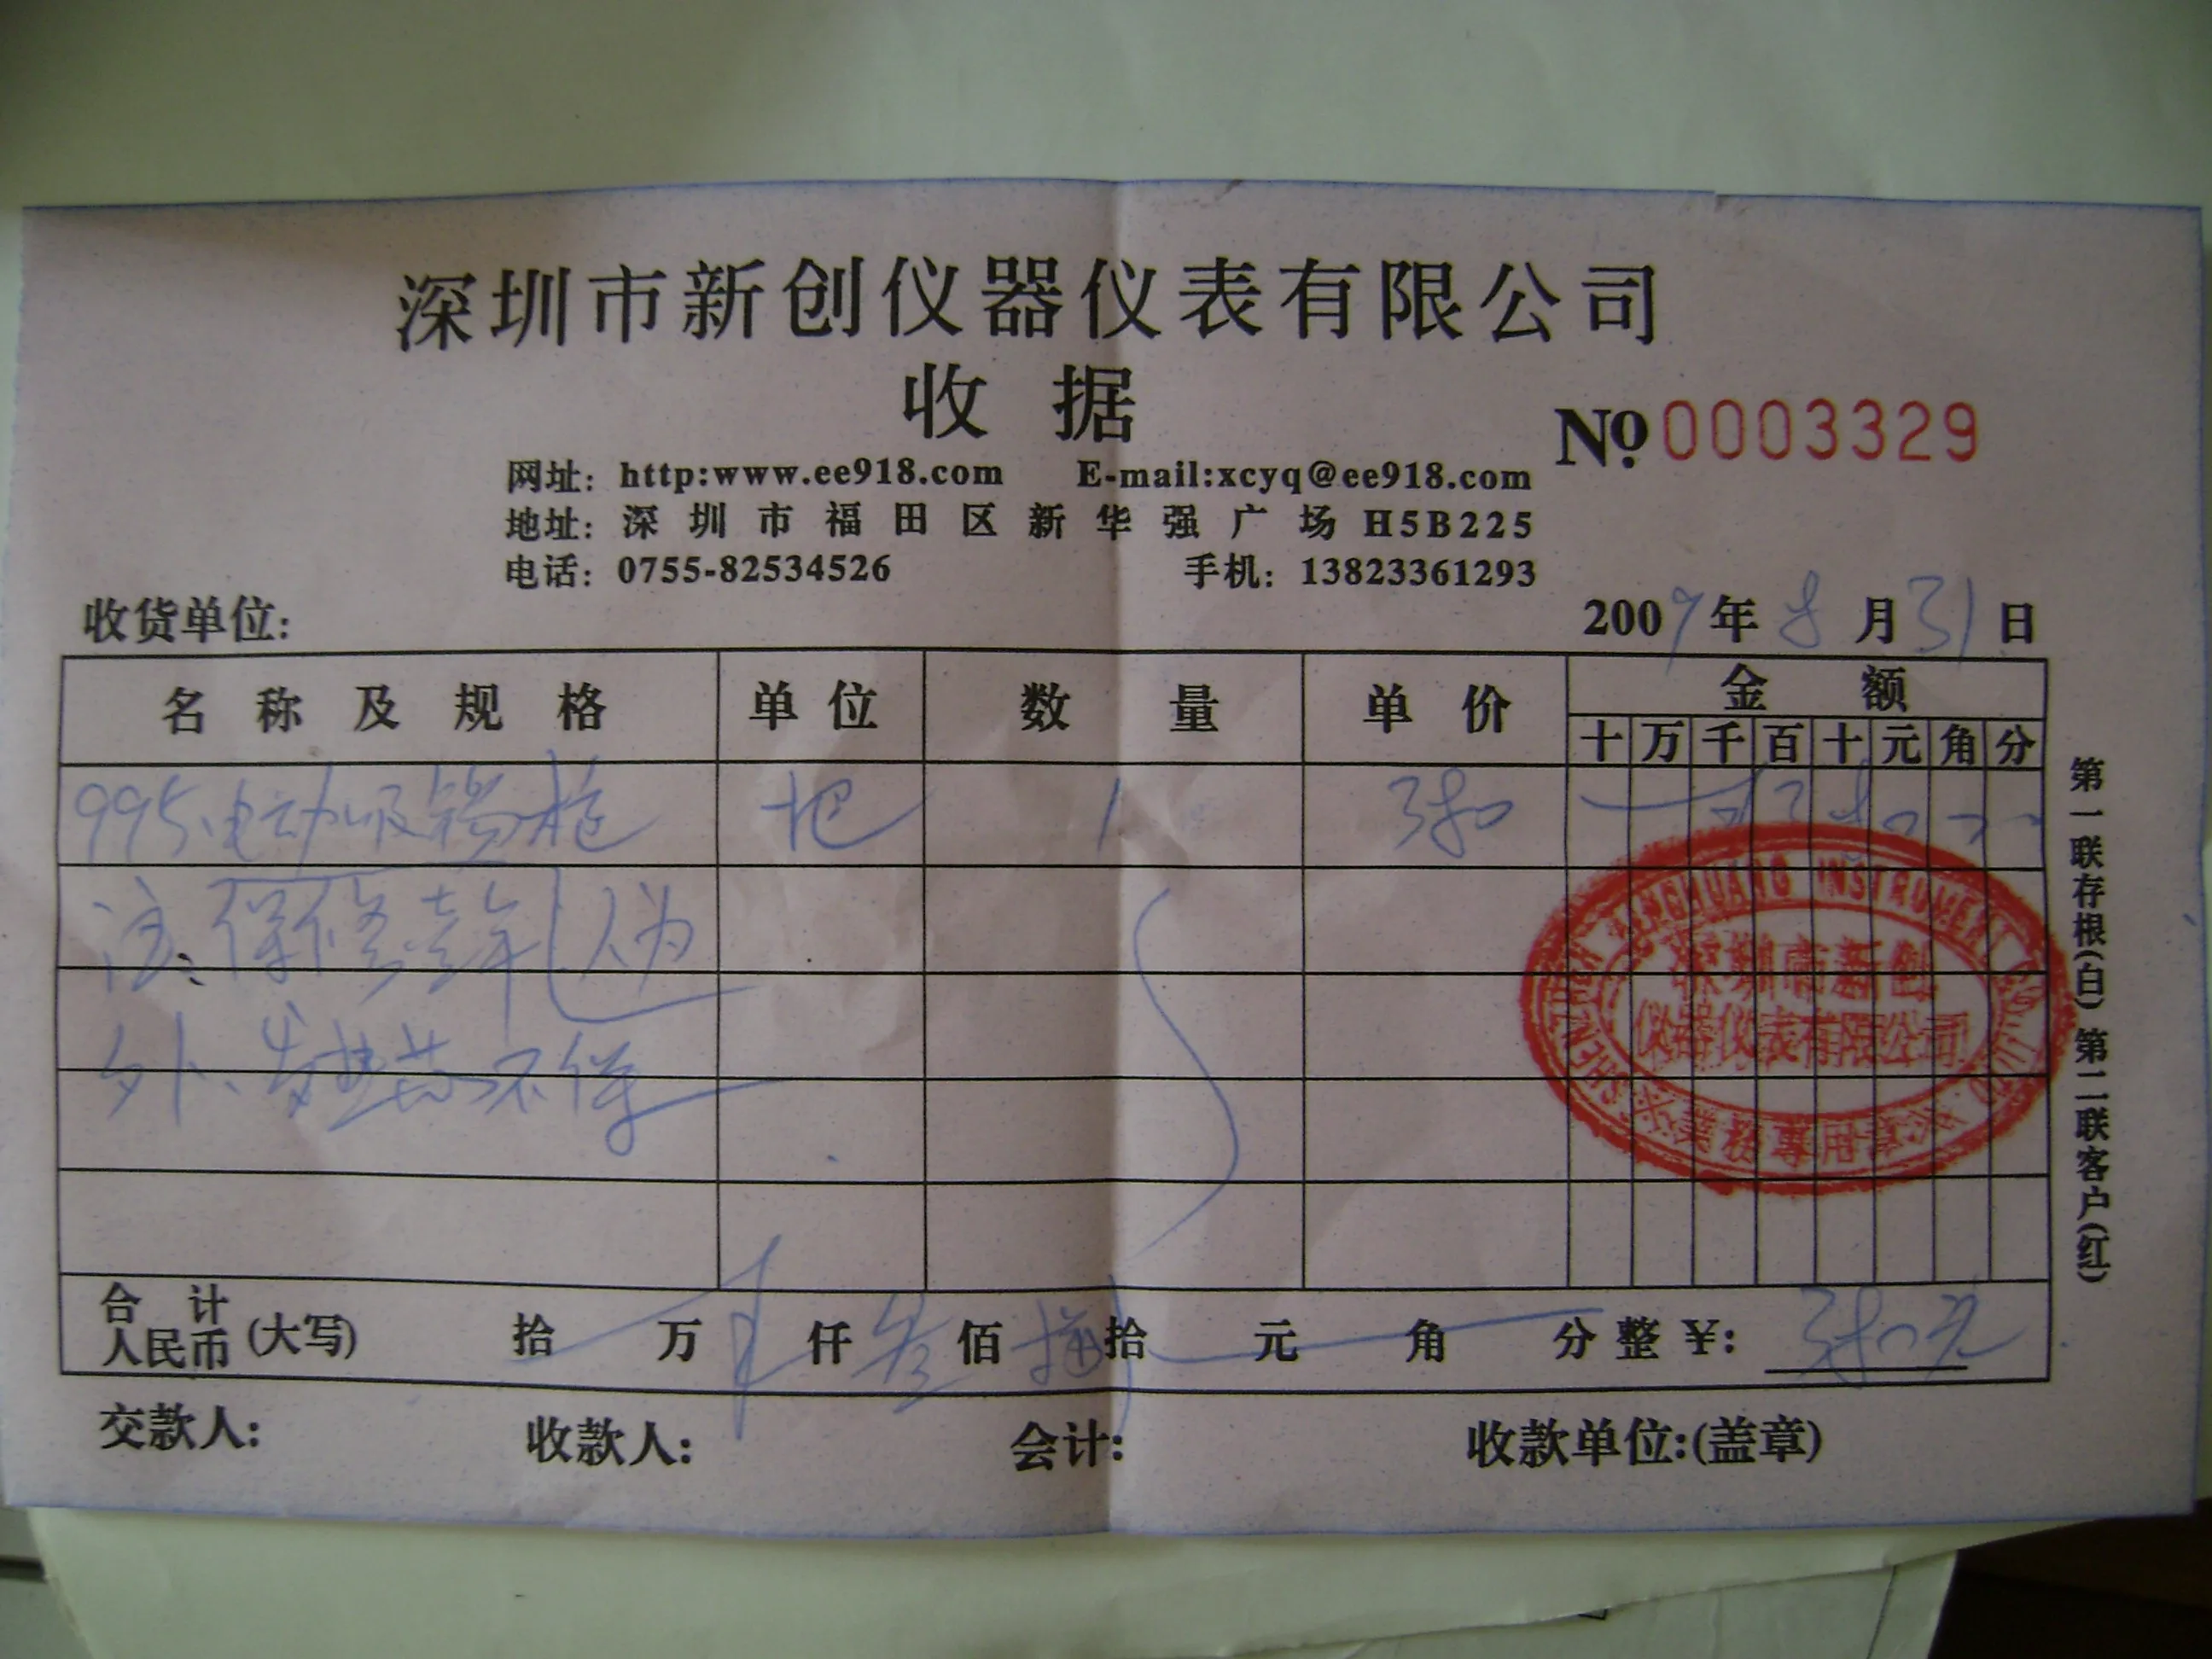 深圳市新创仪器仪表有限公司
收 据
No 0003329
网址: http:www.ee918.com E-mail:xcyq@ee918.com
地址: 深圳市福田区新华强广场H5B225
电话: 0755-82534526 手机: 13823361293
收货单位: 2009年8月31日
名称及规格 单位 数量 单价 金额
十 万 千 百 十 元 角 分
995电动吸锡枪 把 1
注:保修壹年(人为
外、发热芯不保
合计人民币(大写) 拾 万 仟 叁 佰 拾 元 角 分 整 ¥:
交款人: 收款人: 会计: 收款单位:(盖章)
第一联存根(白) 第二联客户(红)
INSTRUMENT
深圳市新创
仪器仪表有限公司
業務專用章